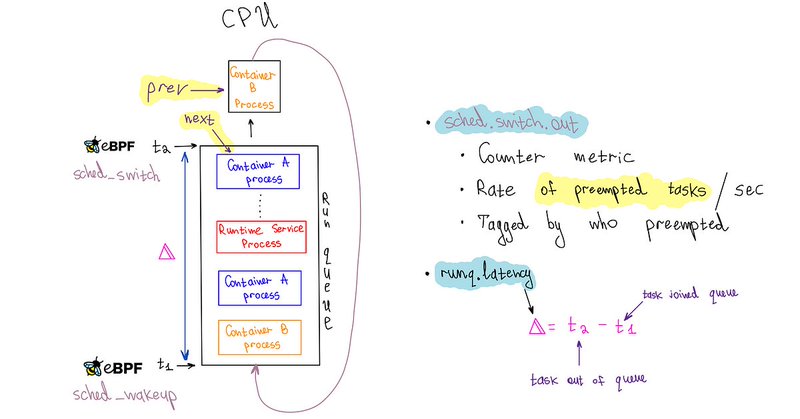 CPU
Container
B
Process
prev
next
eBPF t₂
sched_switch
Container A
process
Runtime Service
Process
Container A
process
Container B
process
Run queue
Δ
eBPF t₁
sched_wakeup
• sched.switch.out
• Counter metric
• Rate of preempted tasks / sec
• Tagged by who preempted
• runq.latency
task joined queue
Δ = t₂ - t₁
task out of queue